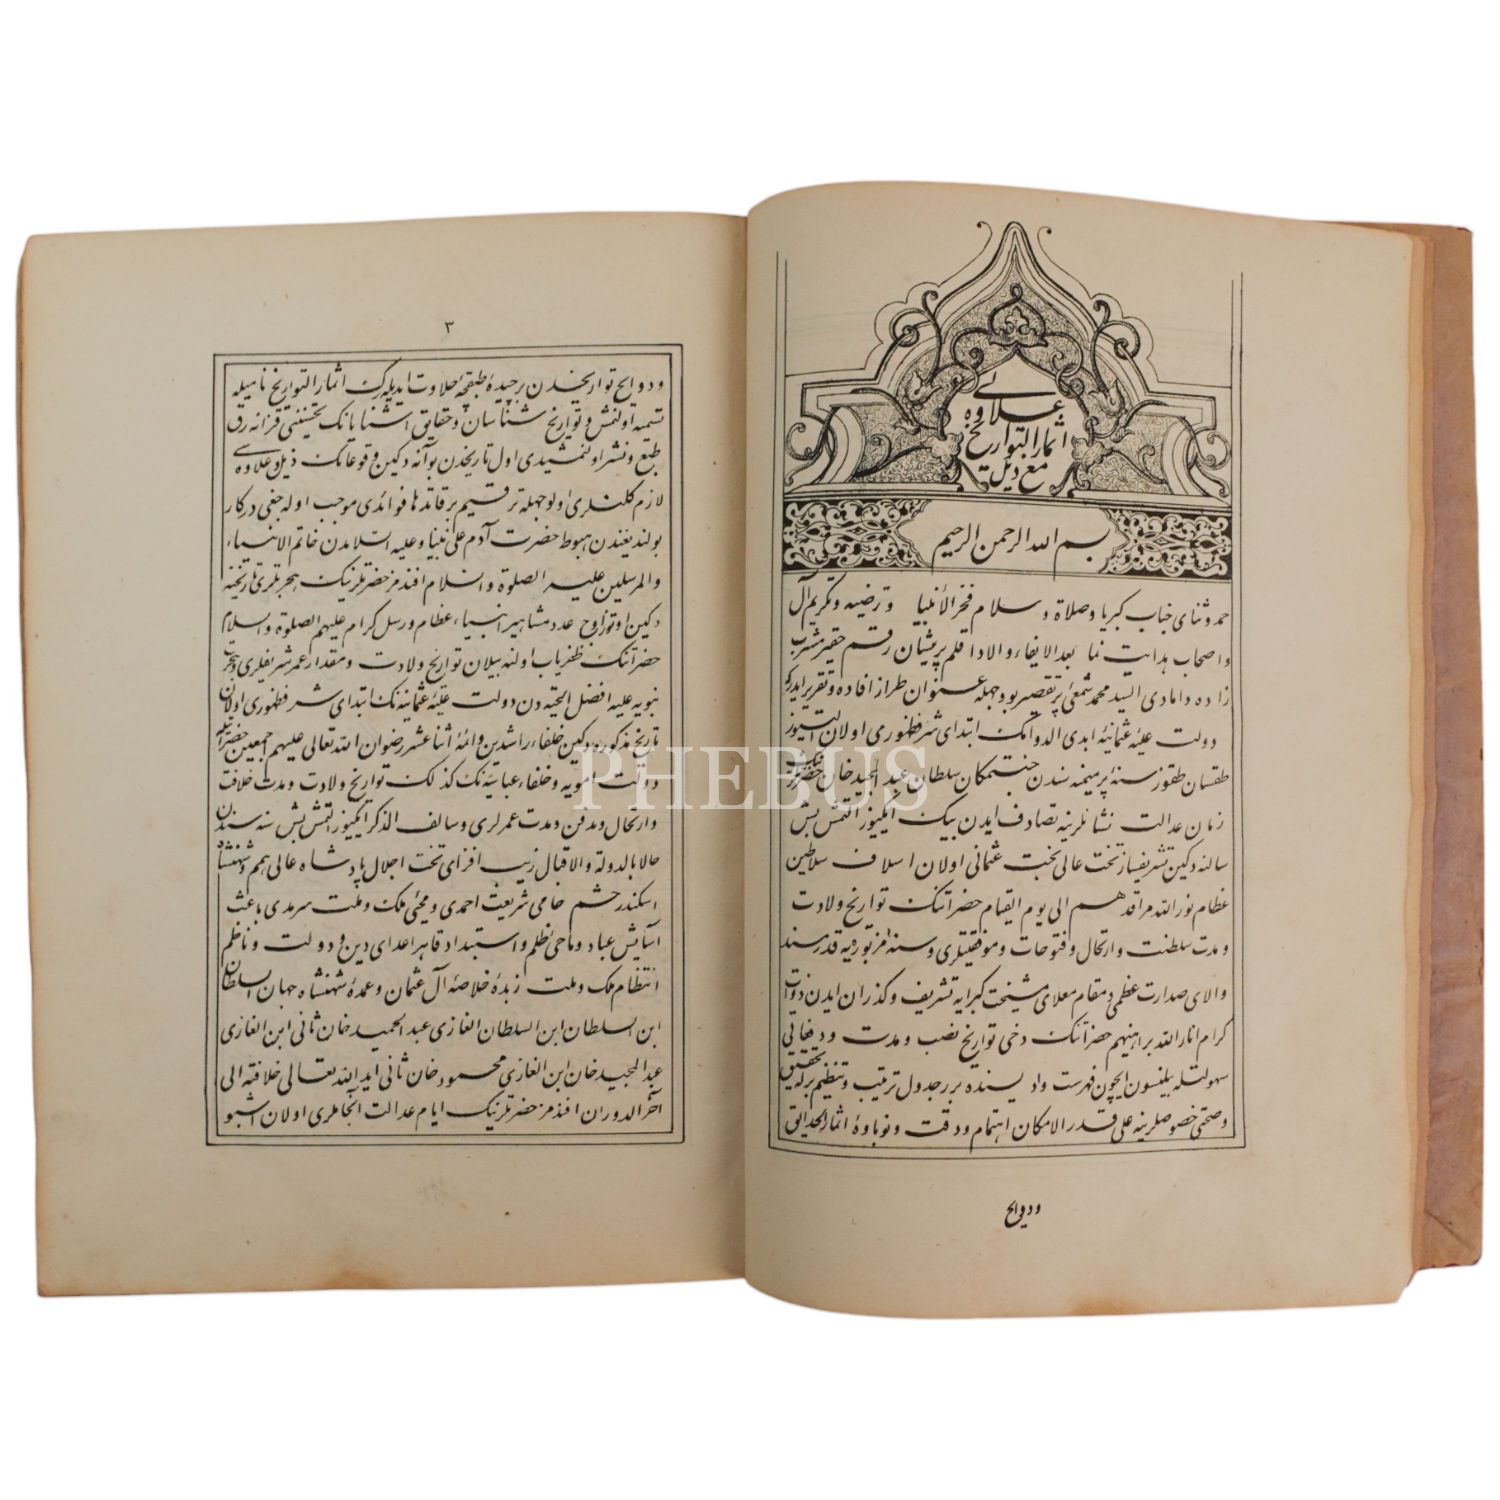 علاوه‌لی
اثمار التواريخ
مع ذيل
بسم الله الرحمن الرحيم
حمد و ثنای جناب کبریا و صلاة و سلام فخر الأنبیا و ترضیه و تکریم آل
و اصحاب هدایت نما بعد الایفاء و الادا قلم پریشان رقم حقیر مشرب
زاده دامادی السید محمد شمعی پر تقصیر بو وجهله عنوان طراز افاده و تقریر ایدرکه
دولت علیهٔ عثمانیهٔ ابدی الدوامک ابتدای شرفظهوری اولان التیوز
طقسان طقوز سنهٔ پرمیمنه سندن جنتمکان سلطان عبد المجید خان حضرتلرینک
زمان عدالت نشانلرینه تصادف ایدن بیک ایکیوز التمش بش
سالنه دکین تشریفساز تخت عالی بخت عثمانی اولان اسلاف سلاطین
عظام نور الله مراقدهم الی یوم القیام حضراتنک تواریخ ولادت
و مدت سلطنت و ارتحال و فتوحات و موفقیتلری و سنهٔ مزبوره‌یه قدر مسند
والای صدارت عظمی و مقام معلای مشیخت کبرایه تشریف و کذران ایدن ذوات
کرام انار الله براهینهم حضراتنک دخی تواریخ نصب و مدت و دفعاتی
سهولتله بیلنسون ایچون فهرست وادیسنده بر جدول ترتیب و تنظیم برله تحقیق
و صحتی خصوصلرینه علی قدر الامکان اهتمام و دقت و نوباوهٔ اثمار الحدایق
و دوایح
۳
و دوایح تواریخدن برچیدهٔ طبقچهٔ حلاوت ایدیله‌رک اثمار التواریخ نامیله
تسمیه اولنمش و تواریخ شناسان و حقایق آشنایانک تحسیننی قزانه‌رق
طبع و نشر اولنمشیدی اول تاریخدن بو آنه دکین وقوعاتک ذیل و علاوه‌سی
لازم کلنلری اولوجهله ترقیم بر قاتدها فوائدی موجب اوله‌جغی درکار
بولندیغندن هبوط حضرت آدم علی نبینا و علیه السلامدن خاتم الانبیاء
والمرسلین علیه الصلوة والسلام افندمز حضرتلرینک هجرتلری تاریخنه
دکین اوتوز اوچ عدد مشاهیر انبیاء عظام و رسل کرام علیهم الصلوة والسلام
حضراتنک ظفریاب اولنه بیلان تواریخ ولادت و مقدار عمر شریفلری و هجرت
نبویه علیه افضل التحیه دن دولت علیهٔ عثمانیه نک ابتدای شرفظهوری اولان
تاریخ مذکوره دکین خلفاء راشدین و ائمهٔ اثنا عشر رضوان الله تعالی علیهم اجمعین حضراتیله
دولت امویه و خلفاء عباسیه نک کذلک تواریخ ولادت و مدت خلافت
و ارتحال و مدفن و مدت عمرلری و سالف الذکر ایکیوز التمش بش سنه سندن
حالا بالدولة والاقبال زیب افزای تخت اجلال پادشاه عالی همم و شهنشاه
اسکندر حشم حامی شریعت احمدی و محیی ملک و ملت سرمدی باعث
آسایش عباد و ماحیٔ ظلم و استبداد قاهر اعدای دین و دولت و ناظم
انتظام ملک و ملت زبدهٔ خلاصهٔ آل عثمان و عمدهٔ شهنشاه جهان السلطان
ابن السلطان ابن السلطان الغازی عبد الحمید خان ثانی ابن الغازی
عبد المجید خان ابن الغازی محمود خان ثانی اید الله تعالی خلافته الی
آخر الدوران افندمز حضرتلرینک ایام عدالت انجاملری اولان اشبو
PHEBUS